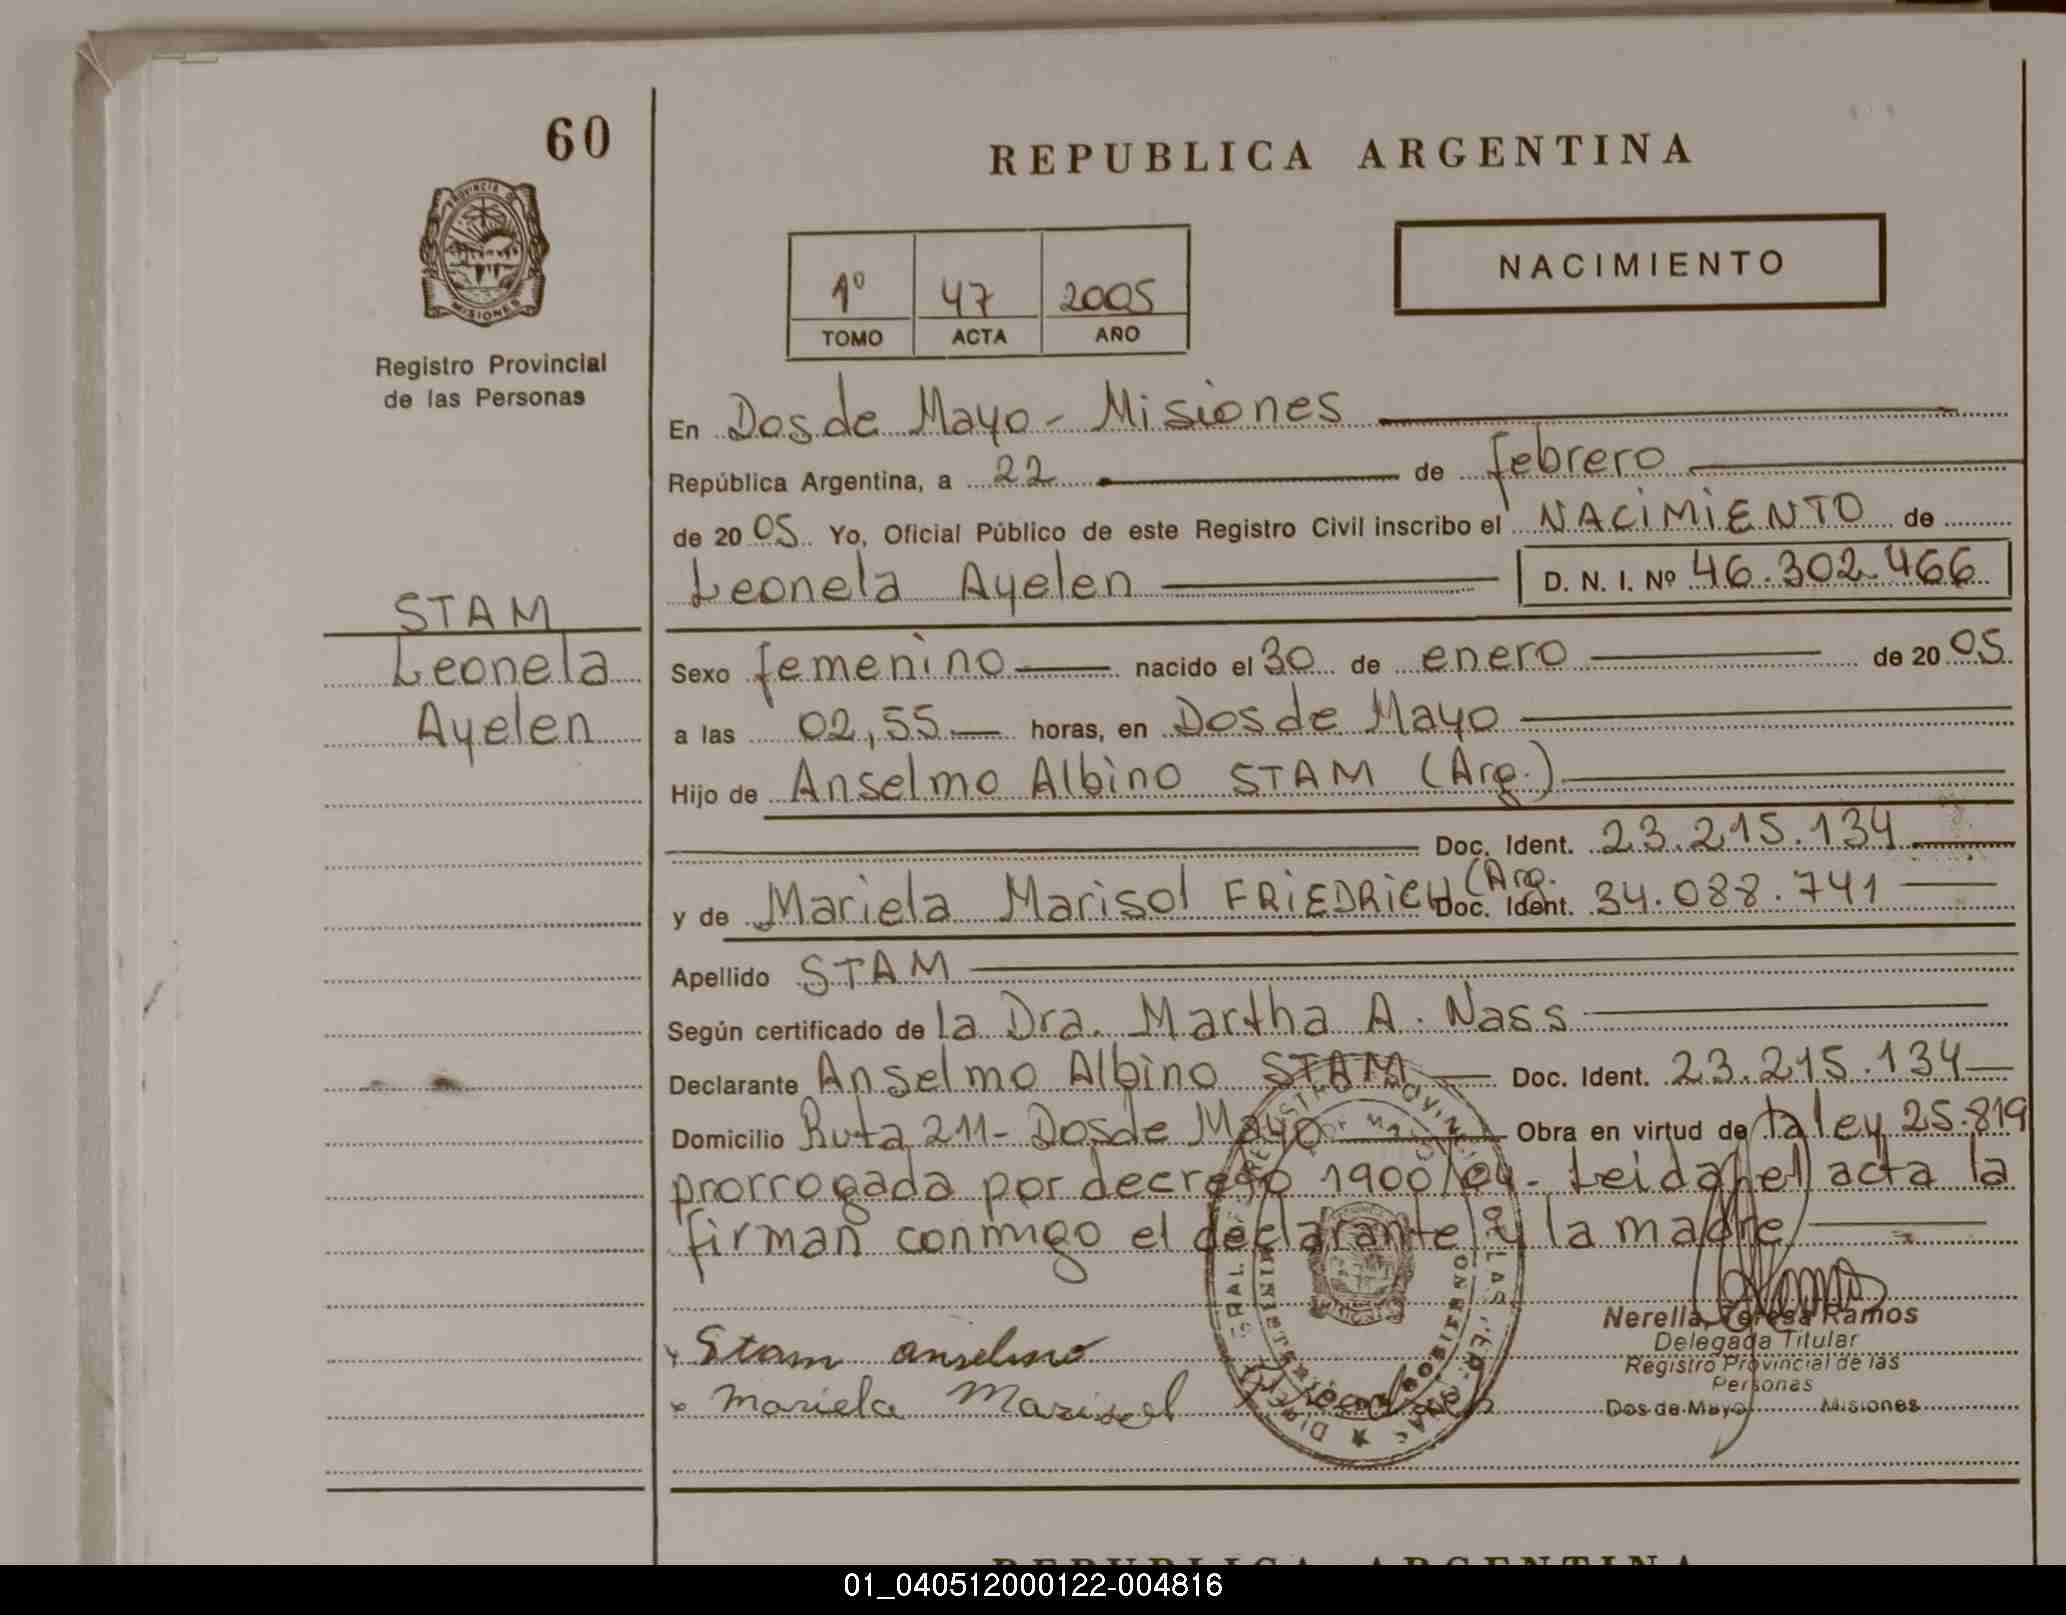 60
REPUBLICA ARGENTINA
PROVINCIA DE
MISIONES
Registro Provincial
de las Personas
NACIMIENTO
1º 47 2005
TOMO ACTA AÑO
En Dos de Mayo - Misiones
República Argentina, a 22 de febrero
de 2005. Yo, Oficial Público de este Registro Civil inscribo el NACIMIENTO de
Leonela Ayelen D. N. I. Nº 46.302.466
STAM
Leonela
Ayelen
Sexo femenino nacido el 30 de enero de 2005
a las 02,55 horas, en Dos de Mayo
Hijo de Anselmo Albino STAM (Arg.)
Doc. Ident. 23.215.134
y de Mariela Marisol FRIEDRICH (Arg. Doc. Ident. 34.088.741
Apellido STAM
Según certificado de la Dra. Martha A. Nass
Declarante Anselmo Albino STAM Doc. Ident. 23.215.134
Domicilio Ruta 211 - Dos de Mayo Obra en virtud de la ley 25.819
prorrogada por decreto 1900/04 - Leida el acta la
firman conmigo el declarante y la madre
Stam anselmo
Mariela Marisol
Nerella Teresa Ramos
Delegada Titular
Registro Provincial de las
Personas
Dos de Mayo Misiones
REPUBLICA ARGENTINA
01_040512000122-004816